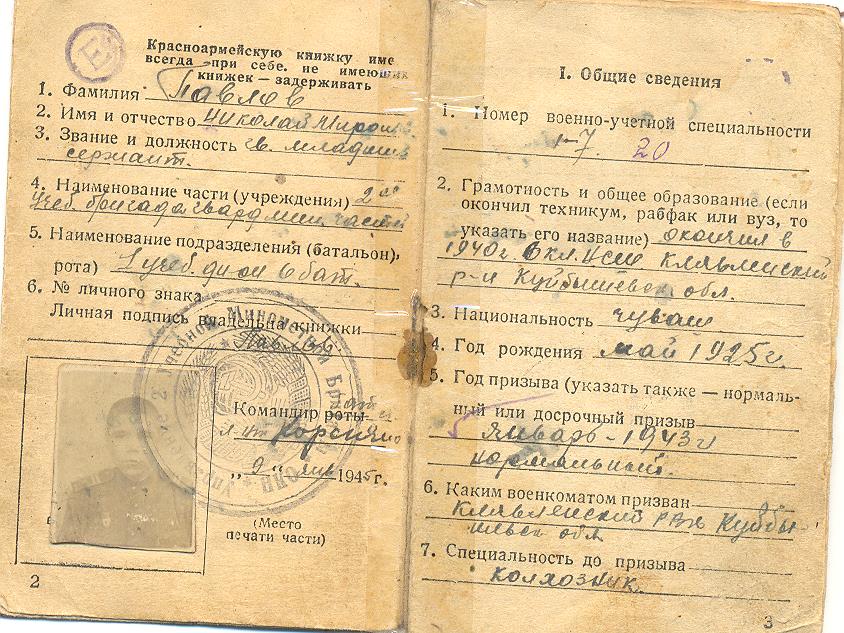 Красноармейскую книжку име
всегда при себе. не имеющих
книжек — задерживать
1. Фамилия Павлов
2. Имя и отчество Николай
3. Звание и должность гв. младший
сержант.
4. Наименование части (учреждения) 2ая
Учеб. бригада гвард мин. частей
5. Наименование подразделения (батальон),
рота) 1 учеб. див-он 6 бат.
6. № личного знака
Личная подпись владельца книжки
Павлов
Командир роты
"9" янв 1945г.
(Место
печати части)
2
I. Общие сведения
1. Номер военно-учетной специальности
20
2. Грамотность и общее образование (если
окончил техникум, рабфак или вуз, то
указать его название) окончил в
1940г. 6 кл. Клявлинский
р-н Куйбышевск обл.
3. Национальность чуваш
4. Год рождения май 1925г.
5. Год призыва (указать также — нормаль-
ный или досрочный призыв
январь - 1943г
нормальный.
6. Каким военкоматом призван
Клявлинский РВК Куйбы-
шевск обл
7. Специальность до призыва
колхозник.
3